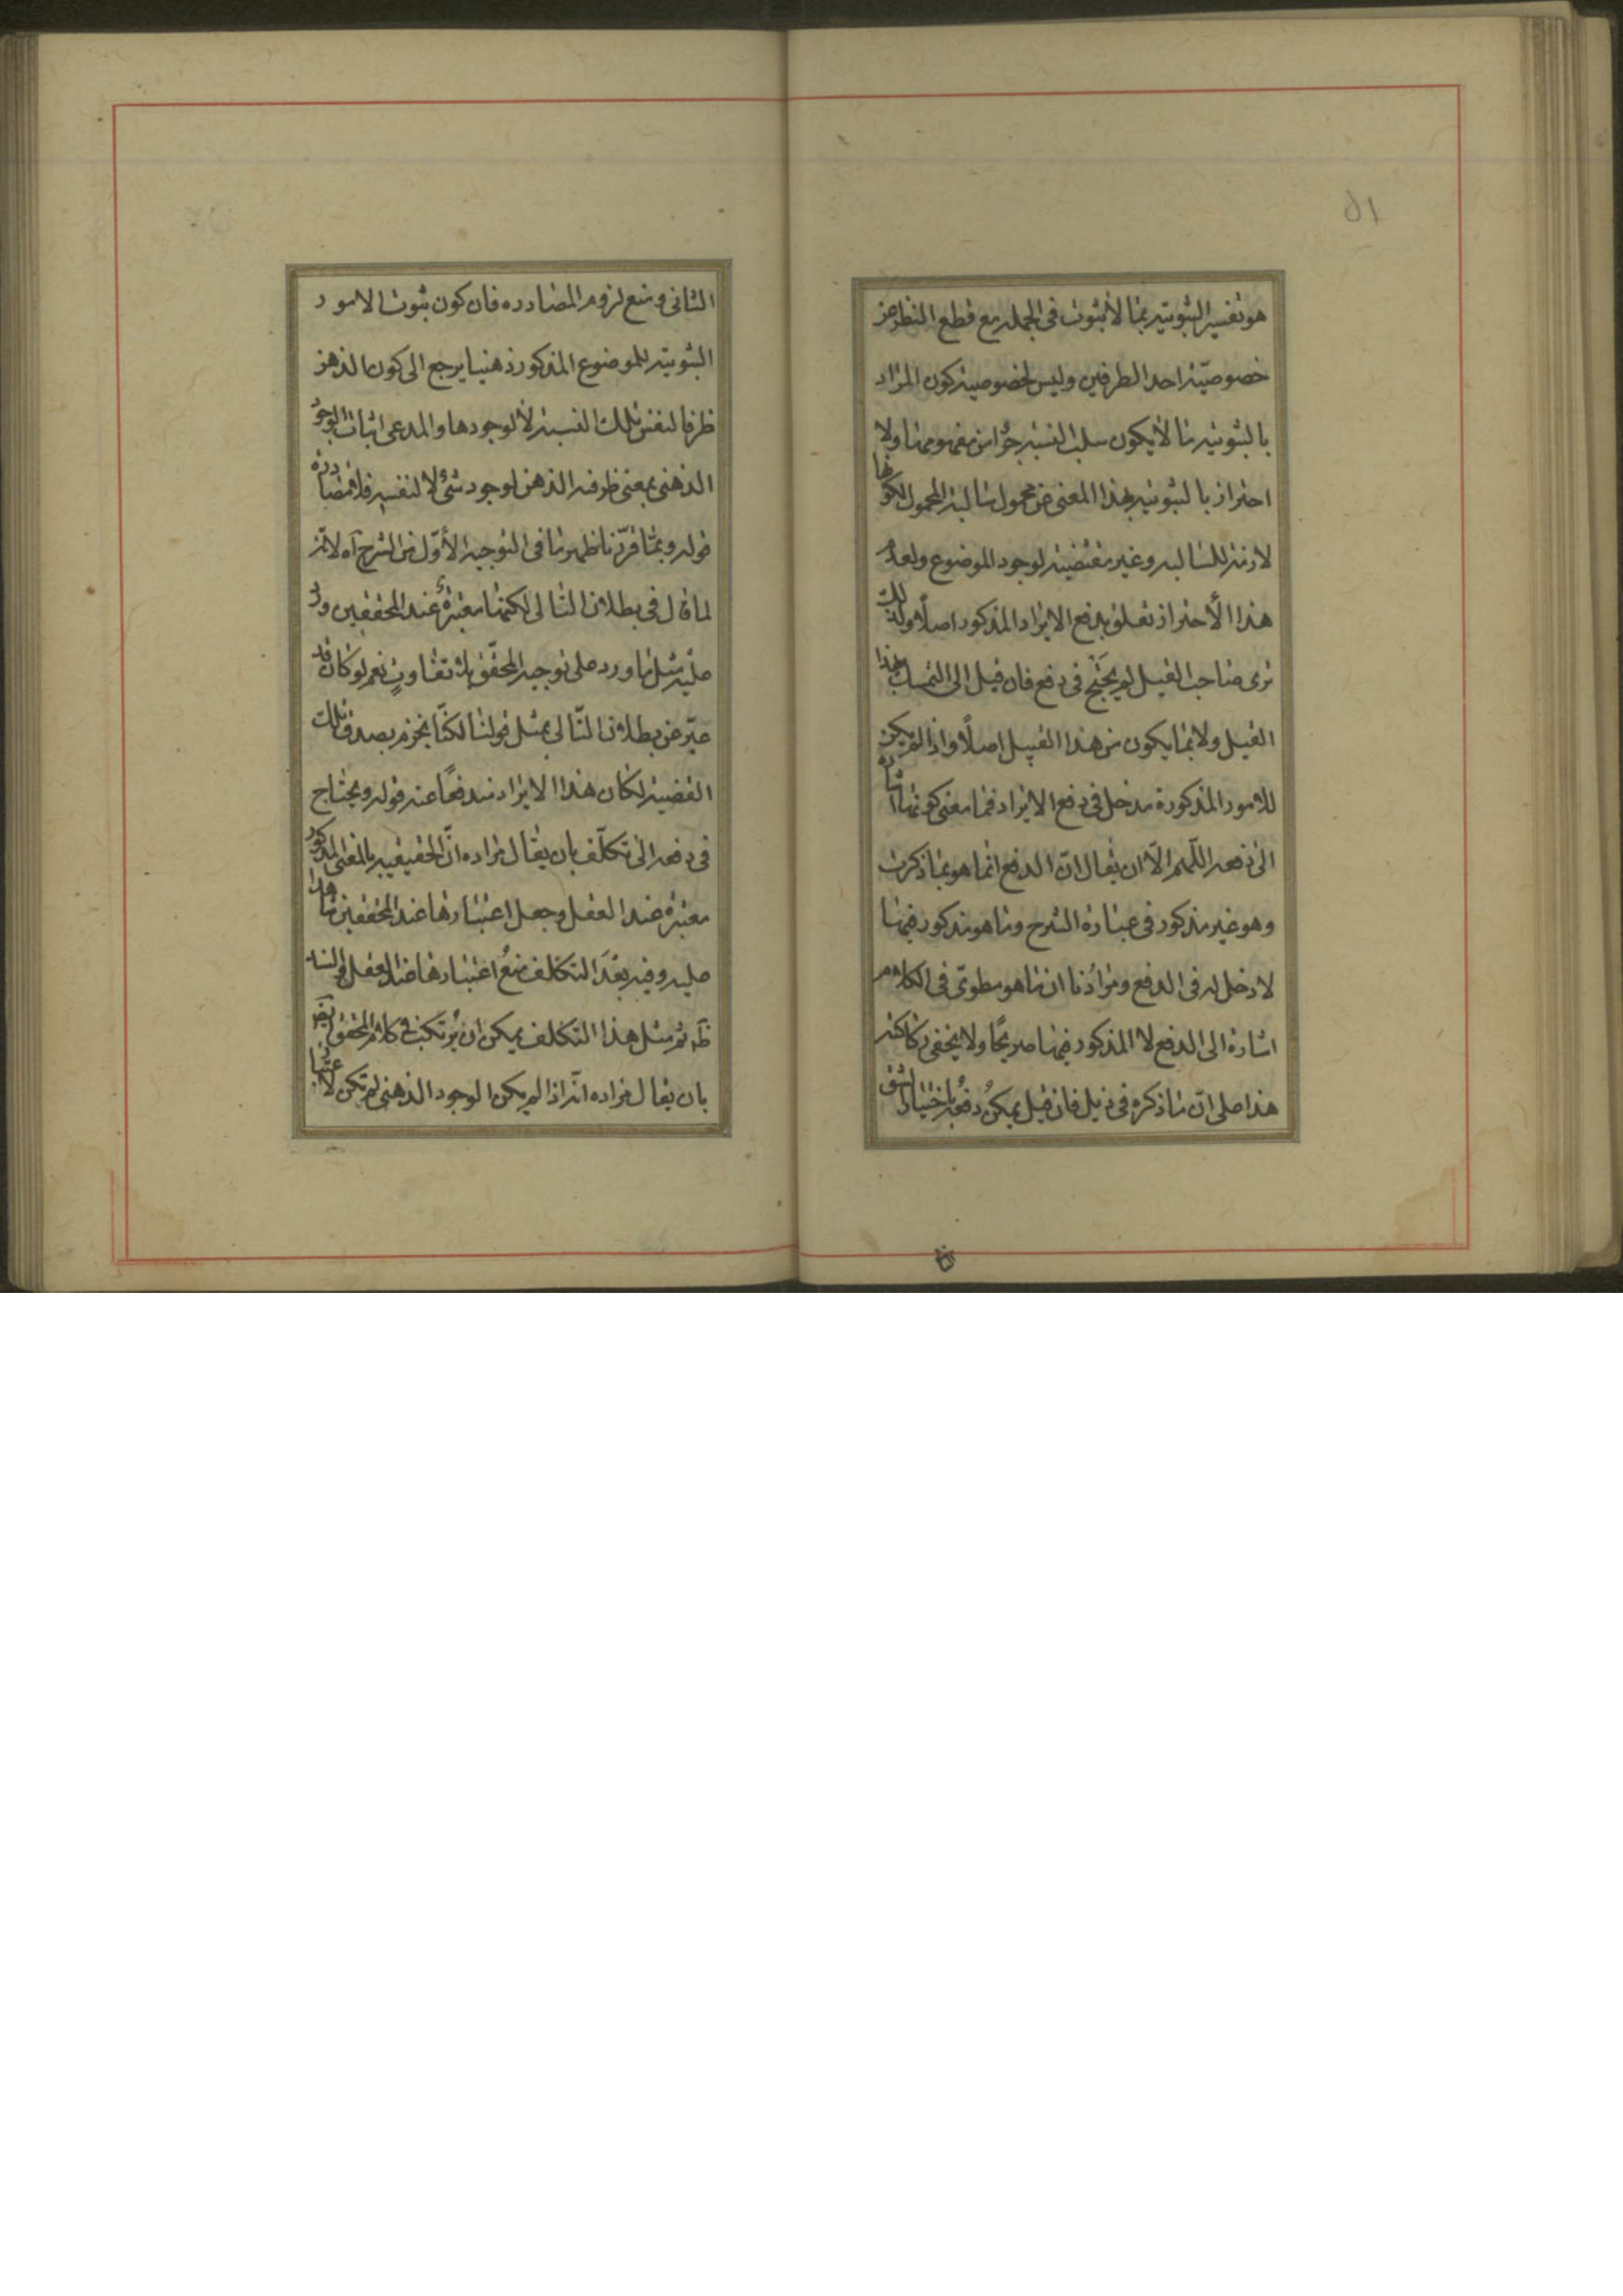 ٥١
هو تفسير الثبوتية بما لا ثبوت في الجملة مع قطع النظر عن
خصوصية احد الطرفين وليس لخصوصية كون المراد
بالثبوتية ما لا يكون سلب النسبة جزوا من مفهومها ولا
احتراز بالثبوتية بهذا المعنى عن محمول سالبة المحمول لكونها
لازمة للسالبة وغير مقتضية لوجود الموضوع ولعل
هذا الأحتراز تعلق بدفع الايراد المذكور اصلًا ولذلك
ترى صاحب القيل لم يحتج في دفع فان قيل الى التمسك بهذا
القيل ولا بما يكون من هذا القبيل اصلًا واذا لم يكن
للامور المذكورة مدخل في دفع الايراد فما معنى كونها اشارة
الى دفعه اللّهم الّا ان يقال انّ الدفع انما هو بما ذكرت
وهو غير مذكور في عبارة الشرح وما هو مذكور فيها
لا دخل له في الدفع ومرادنا ان ما هو مطوىّ في الكلام
اشارة الى الدفع لا المذكور فيها صريحًا ولا يخفى ركاكته
هذا على انّ ما ذكره في ذيل فان قيل يمكن دفعه باختيار الشق
الثانى ومنع لزوم المصادره فان كون ثبوت الامور
الثبوتية للموضوع المذكور ذهنيا يرجع الى كون الذهن
ظرفا لنفس تلك النسبة لا لوجودها والمدعى اثبات الوجود
الذهنى بمعنى ظرفية الذهن لوجود شئ لا لنفسه فلا مصادرة
قوله وبما قرّرنا ظهر ما في التوجيه الأوّل من الشرح آه لانّ
لما قال في بطلان التالى لكنها معتبرة عند المحققين ورد
عليه مثل ما ورد على توجيه المحقّق بلا تفاوتٍ نعم لو كان قد
عبّر عن بطلان التّالى بمثل قولنا لكنّا نجزم بصدق تلك
القضية لكان هذا الايراد مندفعًا عنه قوله ويحتاج
في دفعه الى تكلّف بان يقال مراده انّ الحقيقية بالمعنى المذكور
معتبرة عند العقل وجعل اعتبارها عند المحققين شاهدا
عليه وفيه بعد التكلف منع اعتبارها عند العقل والسند
ظَ ثم مثل هذا التكلف يمكن ان يرتكب في كلام المحقق ايضَ
بان يقال مراده انّه اذا لم يكن الوجود الذهنى لم تكن